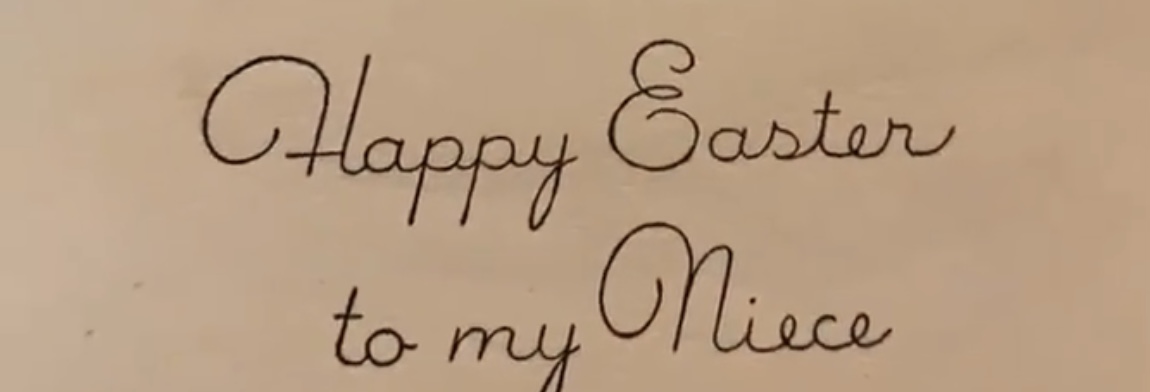 Happy Easter
to my Niece